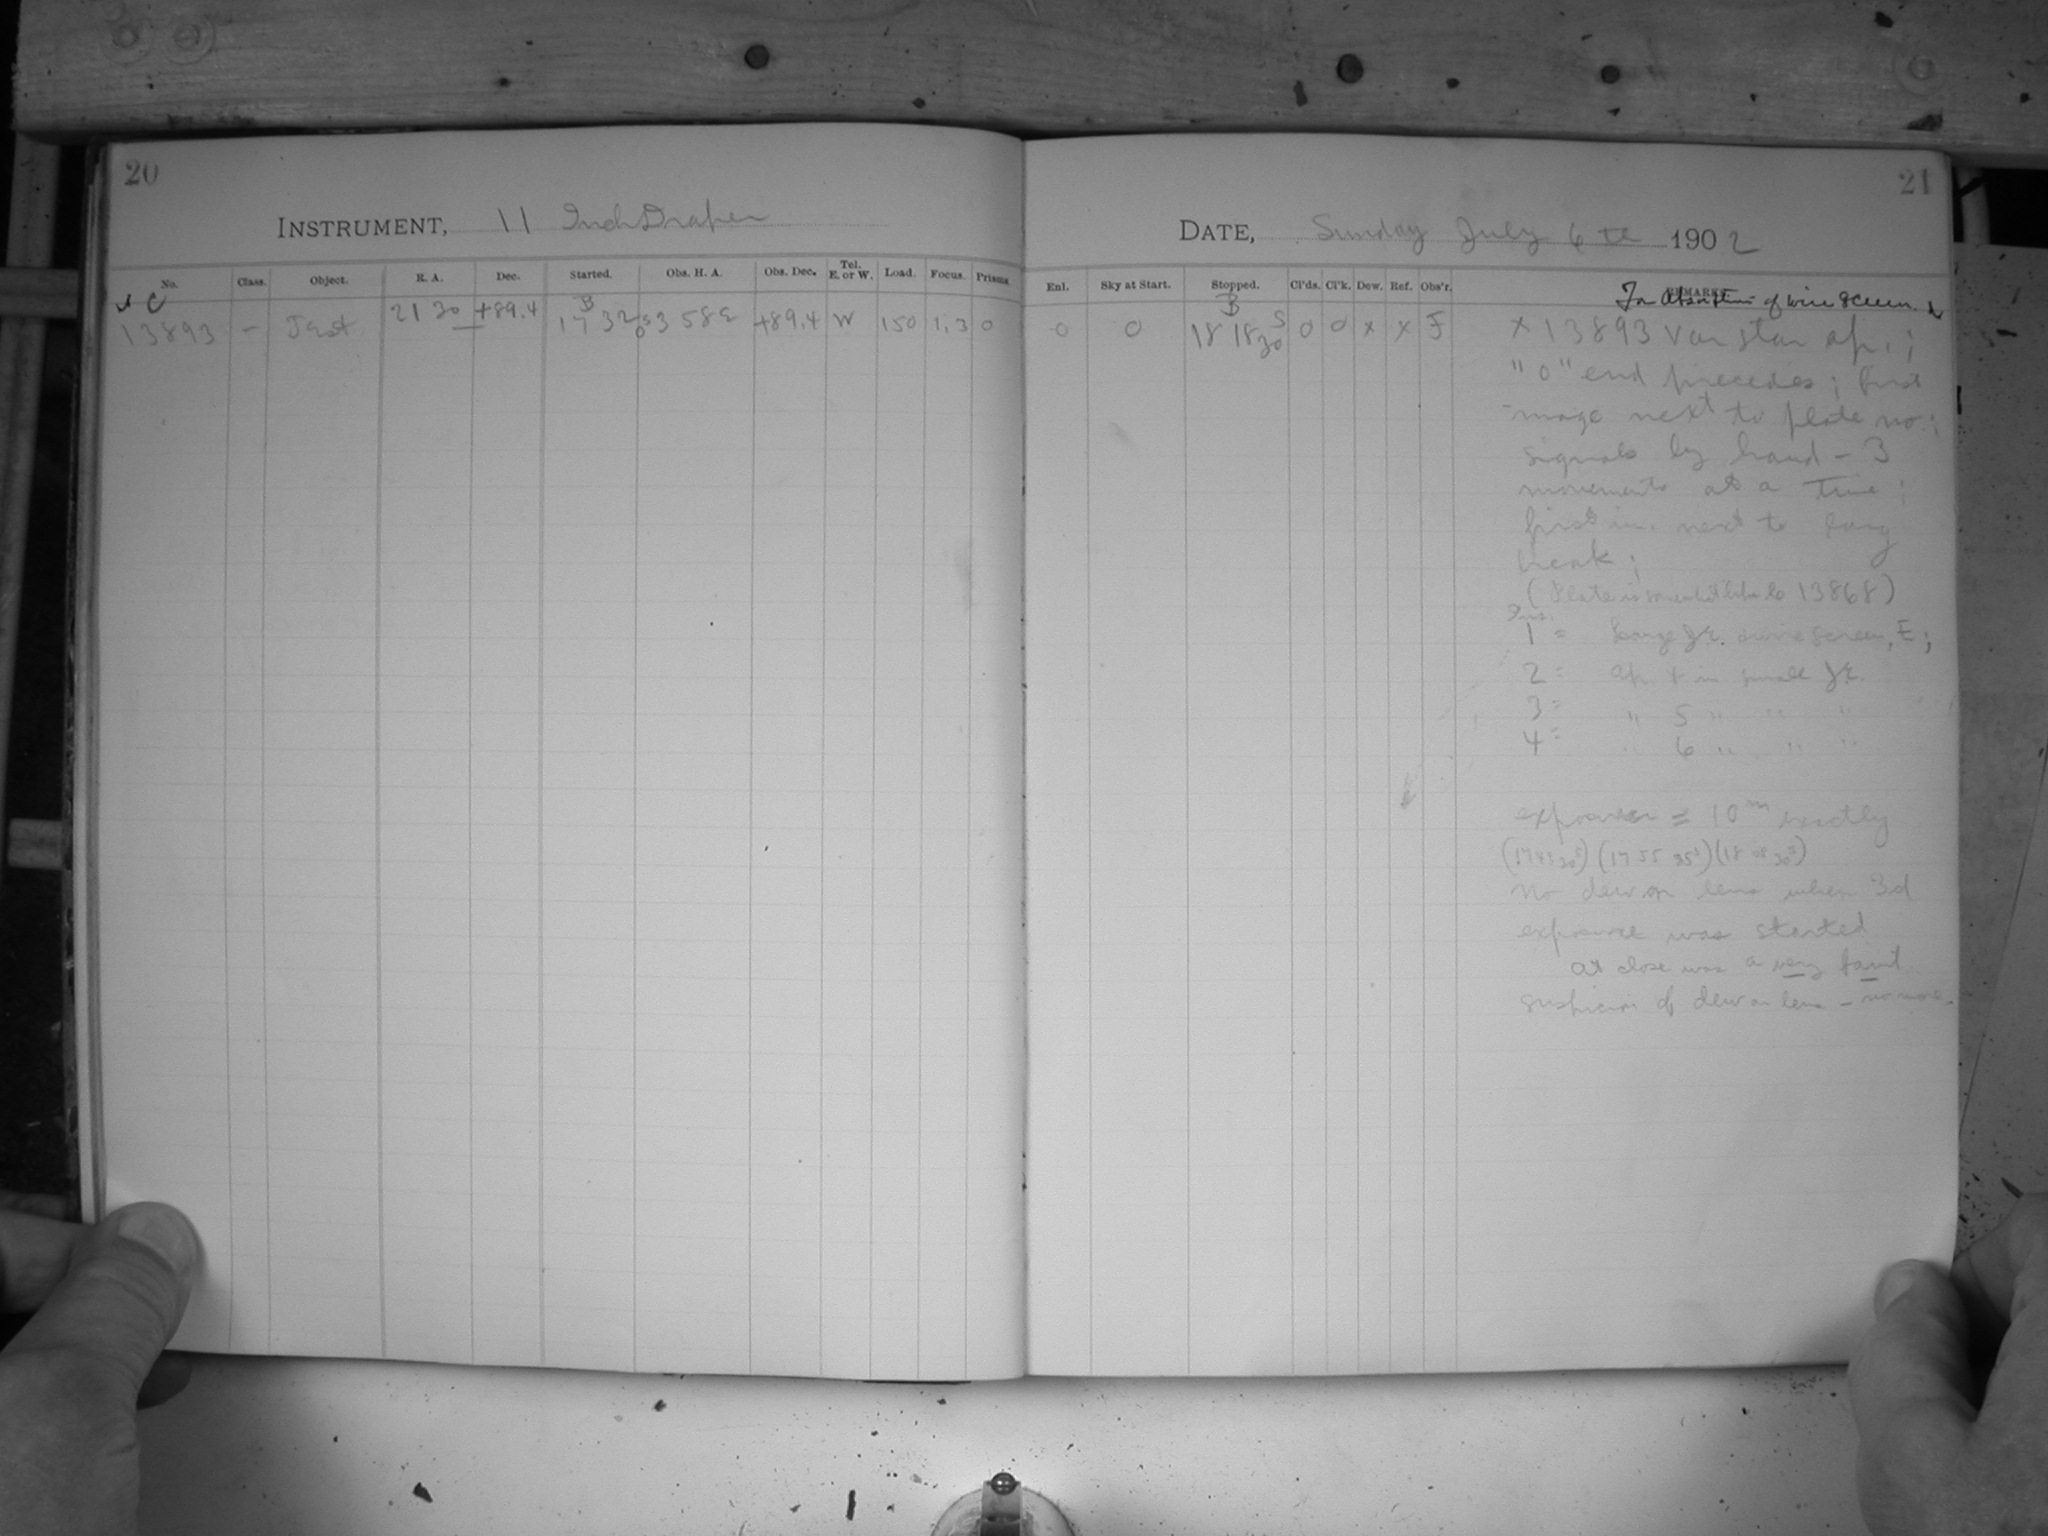 20
INSTRUMENT, 11 Inch Draper
No. Class. Object. R. A. Dec. Started. Obs. H. A. Obs. Dec. Tel. E. or W. Load. Focus. Prisms
C B
13893 – Test 21 30 +89.4 17 32 0s 3 58 E +89.4 W 150 1,3 0
21
DATE, Sunday July 6 th 1902
Enl. Sky at Start. Stopped. Cl'ds. Cl'k. Dew. Ref. Obs'r. REMARKS
B For absorption of wire screen.
0 0 18 18 30 s 0 0 x x F x 13893 Var star ap. ;
"0" end precedes ; first
image next to plate no. ;
signals by hand - 3
movements at a time ;
first im. next to long
break ;
(Plate is somewhat similar to 13868)
1 = large wire screen, E ;
2 = ap. 4 in small
3 = " 5 " " "
4 = " 6 " " "
exposures = 10 m exactly
(17 43 30s) (17 55 35s) (18 08 30s)
No dew on lens when 3d
exposure was started
at close was a very faint
suspicion of dew on lens - no more.